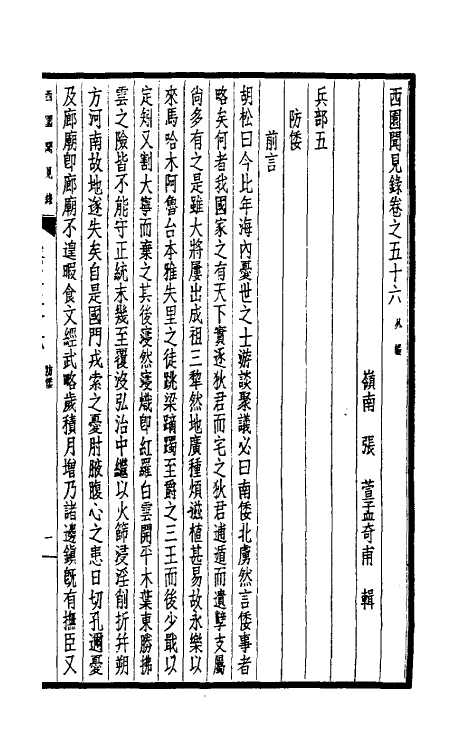 西園聞見錄卷之五十六 外編
嶺南 張 萱孟奇甫 輯
兵部五
防倭
前言
胡松曰今比年海內憂世之士游談聚議必曰南倭北虜然言倭事者
略矣何者我國家之有天下實逐狄君而宅之狄君逋遁而遺孽支屬
尚多有之是雖大將屢出成祖三犂然地廣種煩滋植甚易故永樂以
來馬哈木阿魯台本雅失里之徒跳梁躑躅至爵之三王而後少戢以
定矧又割大寧而棄之其後寖然寖熾卽紅羅白雲開平木葉東勝拂
雲之險皆不能守正統末幾至覆沒弘治中繼以火篩浸淫削折幷朔
方河南故地遂失矣自是國門戎索之憂肘腋腹心之患日切孔邇憂
及廊廟卽廊廟不遑暇食文經武略歲積月增乃諸邊鎭旣有撫臣又
西園聞見錄
防倭
一